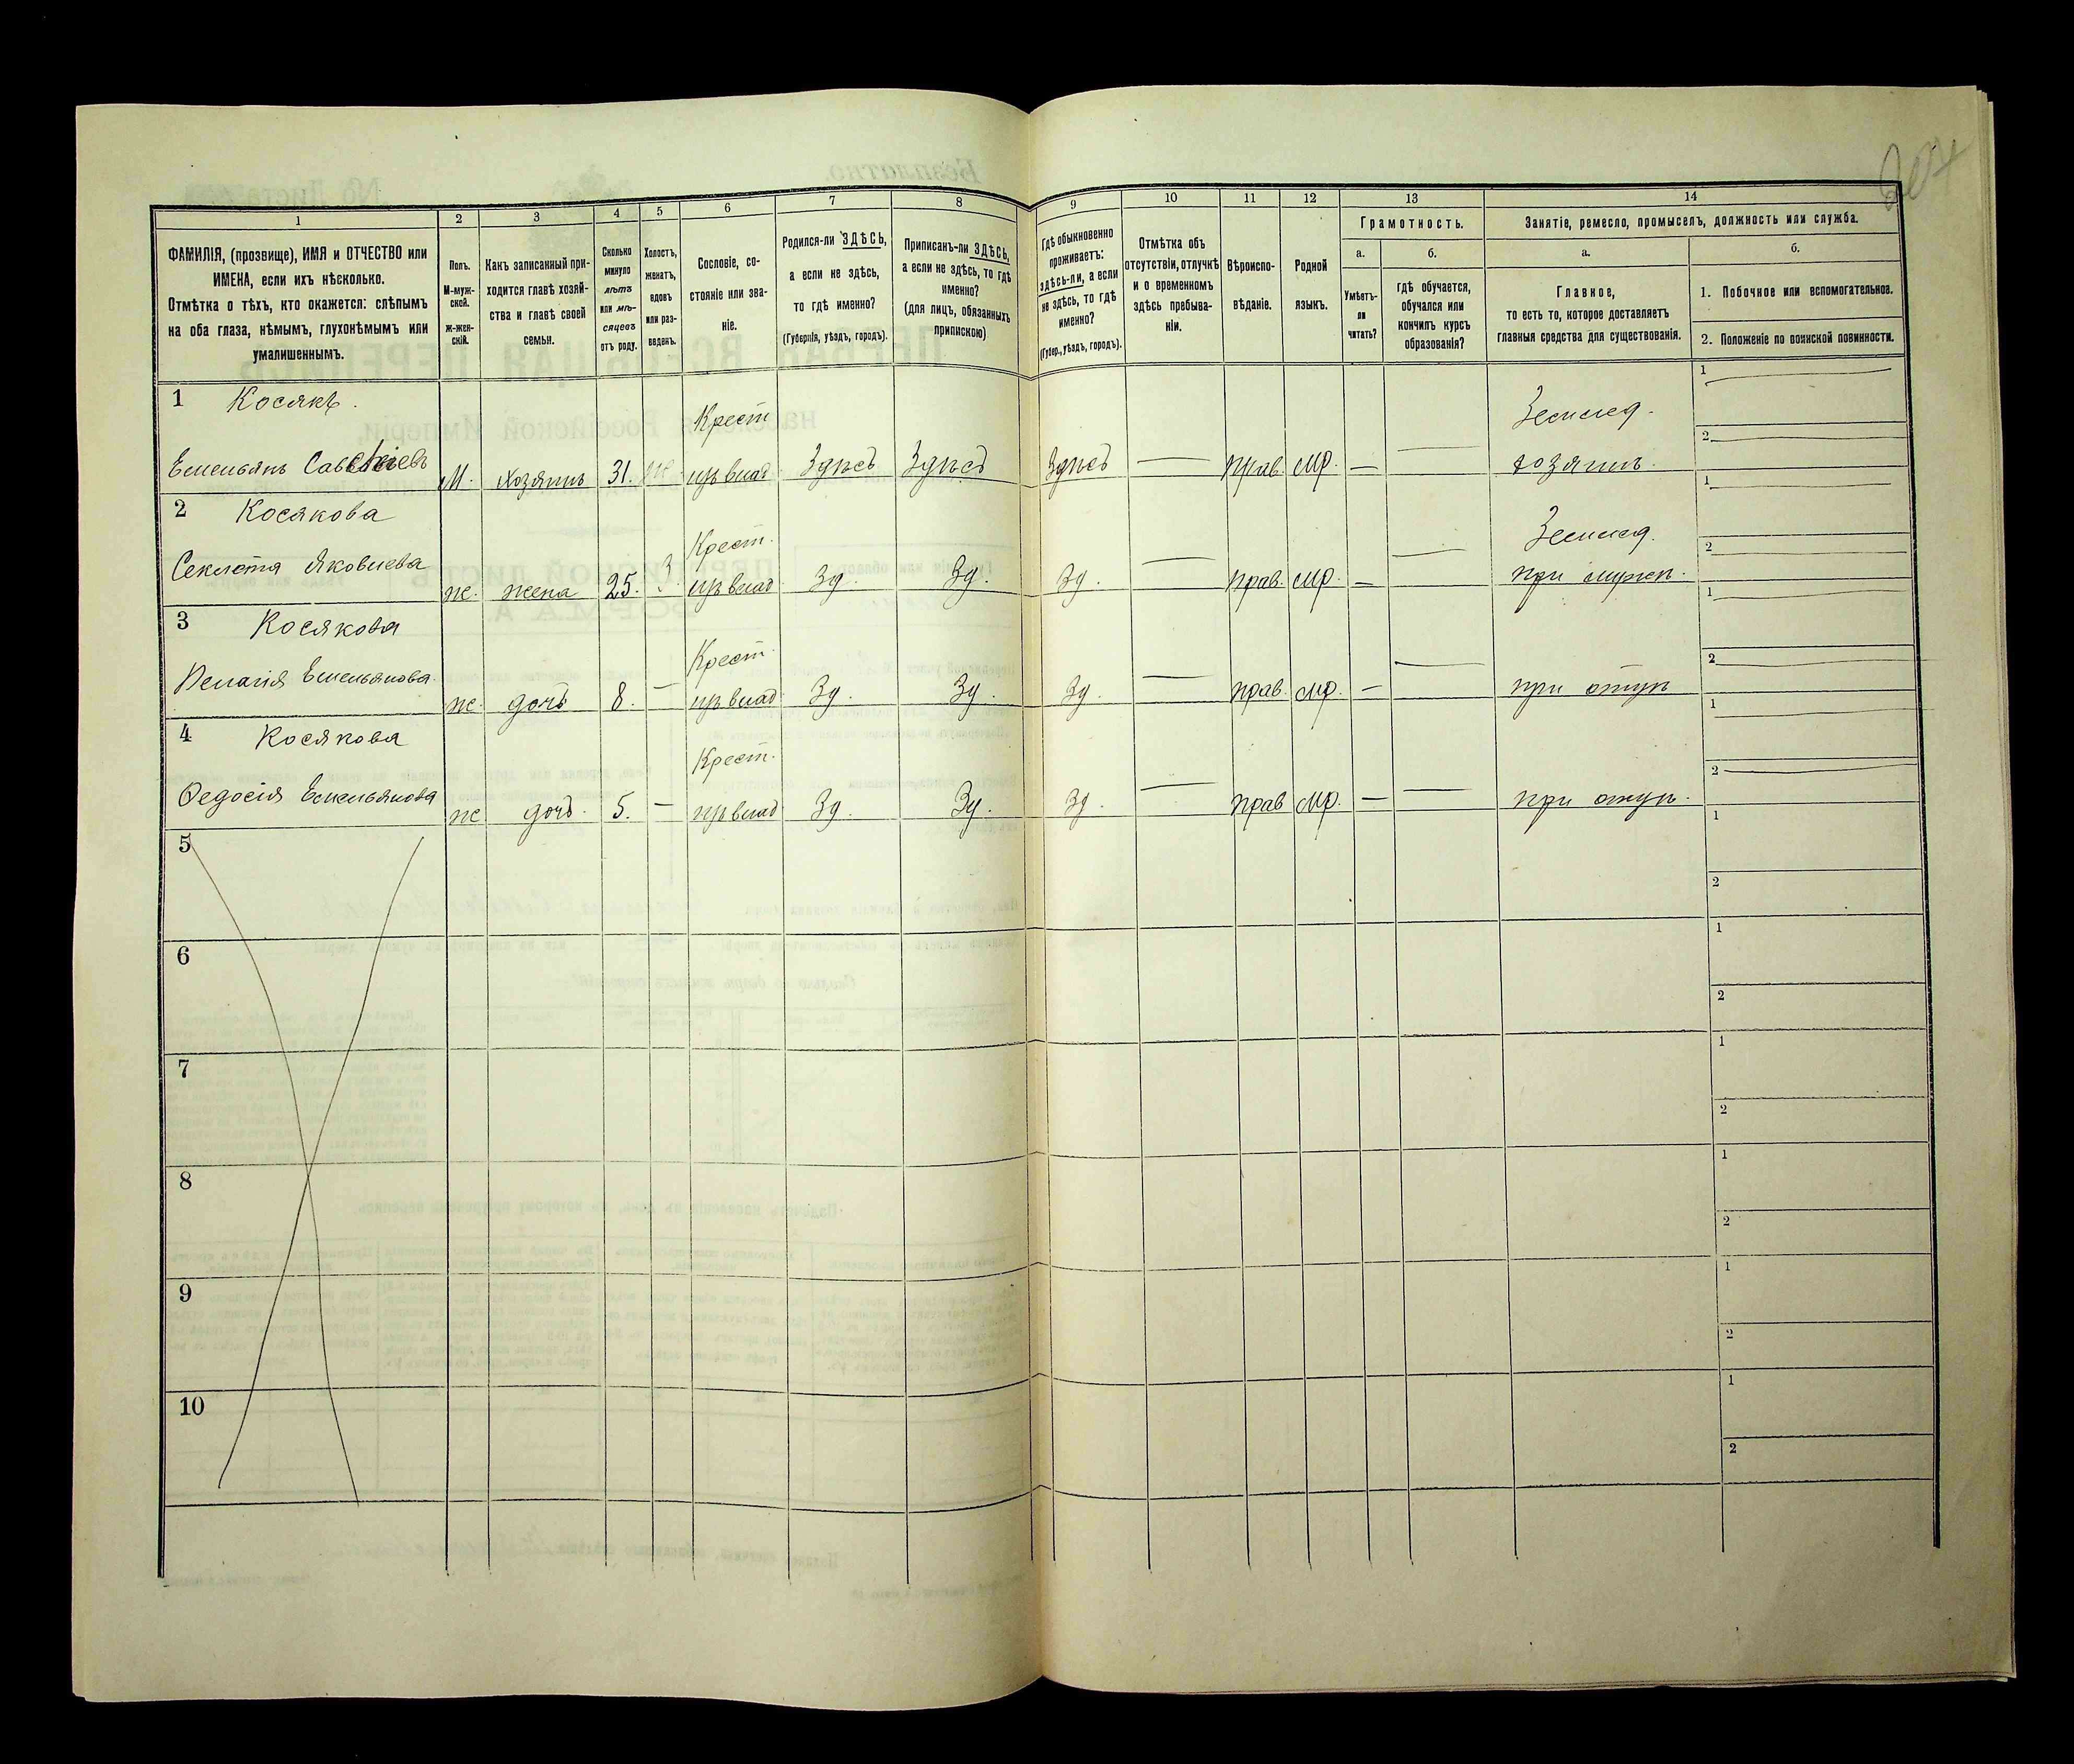 204
1 2 3 4 5 6 7 8 9 10 11 12 13 14
ФАМИЛІЯ, (прозвище), ИМЯ и ОТЧЕСТВО или
ИМЕНА, если ихъ нѣсколько.
Отмѣтка о тѣхъ, кто окажется: слѣпымъ
на оба глаза, нѣмымъ, глухонѣмымъ или
умалишеннымъ.
Полъ.
М-муж-
ской.
ж-жен-
скій.
Какъ записанный при-
ходится главѣ хозяй-
ства и главѣ своей
семьи.
Сколько
минуло
лѣтъ
или мѣ-
сяцевъ
отъ роду.
Холостъ,
женатъ,
вдовъ
или раз-
веденъ.
Сословіе, со-
стояніе или зва-
ніе.
Родился-ли ЗДѢСЬ,
а если не здѣсь,
то гдѣ именно?
(Губернія, уѣздъ, городъ).
Приписанъ-ли ЗДѢСЬ,
а если не здѣсь, то гдѣ
именно?
(для лицъ, обязанныхъ
припискою)
Гдѣ обыкновенно
проживаетъ:
здѣсь-ли, а если
не здѣсь, то гдѣ
именно?
(Губер., уѣздъ, городъ).
Отмѣтка объ
отсутствіи, отлучкѣ
и о временномъ
здѣсь пребыва-
ніи.
Вѣроиспо-
вѣданіе.
Родной
языкъ.
Грамотность.
а.
Умѣетъ-
ли
читать?
б.
гдѣ обучается,
обучался или
кончилъ курсъ
образованія?
Занятіе, ремесло, промыселъ, должность или служба.
а.
Главное,
то есть то, которое доставляетъ
главныя средства для существованія.
б.
1. Побочное или вспомогательное.
2. Положеніе по воинской повинности.
1 Косякъ. Крест Землед. 1
2
Емельянъ М. хозяинъ 31. Здѣсь Здѣсь Здѣсь — прав. мр. — — хозяинъ.
2 Косякова Крест. Землед. 1
2
Секлета Яковлева ж. жена 25. З Зд. Зд. Зд. — прав. мр. — — при мужѣ.
3 Косякова Крест. 1
2
Пелагія Емельянова. ж. дочь 8. — Зд. Зд. Зд. — прав. мр. — — при отцѣ
4 Косякова Крест. 1
2
Федосія Емельянова ж дочь. 5. — Зд. Зд. Зд. — прав мр. — — при отцѣ.
5 1
2
6 1
2
7 1
2
8 1
2
9 1
2
10 1
2